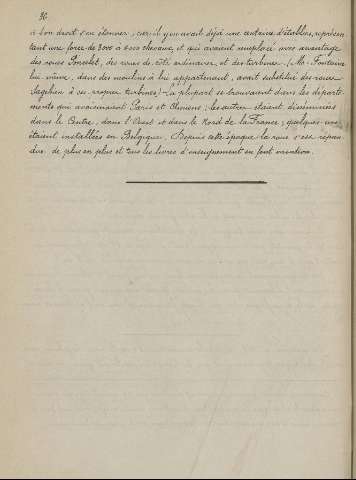 90
à bon droit s'en étonner, car il y en avait déjà une centaine d'établies, représen-
tant une force de 3000 à 4000 chevaux, et qui avaient remplacé avec avantage
des roues Poncelet, des roues de côté ordinaires, et des turbines. (Mr. Fontaine
lui même, dans des moulins à lui appartenant, avait substitué des roues
Sagebien à ses propres turbines) - La plupart se trouvaient dans les départe-
ments qui avoisinaient Paris et Amiens; les autres étaient disséminées
dans le Centre, dans l'Ouest et dans le Nord de la France; quelques-unes
étaient installées en Belgique. Depuis cette époque la roue s'est répan-
due de plus en plus et tous les livres d'enseignement en font mention.